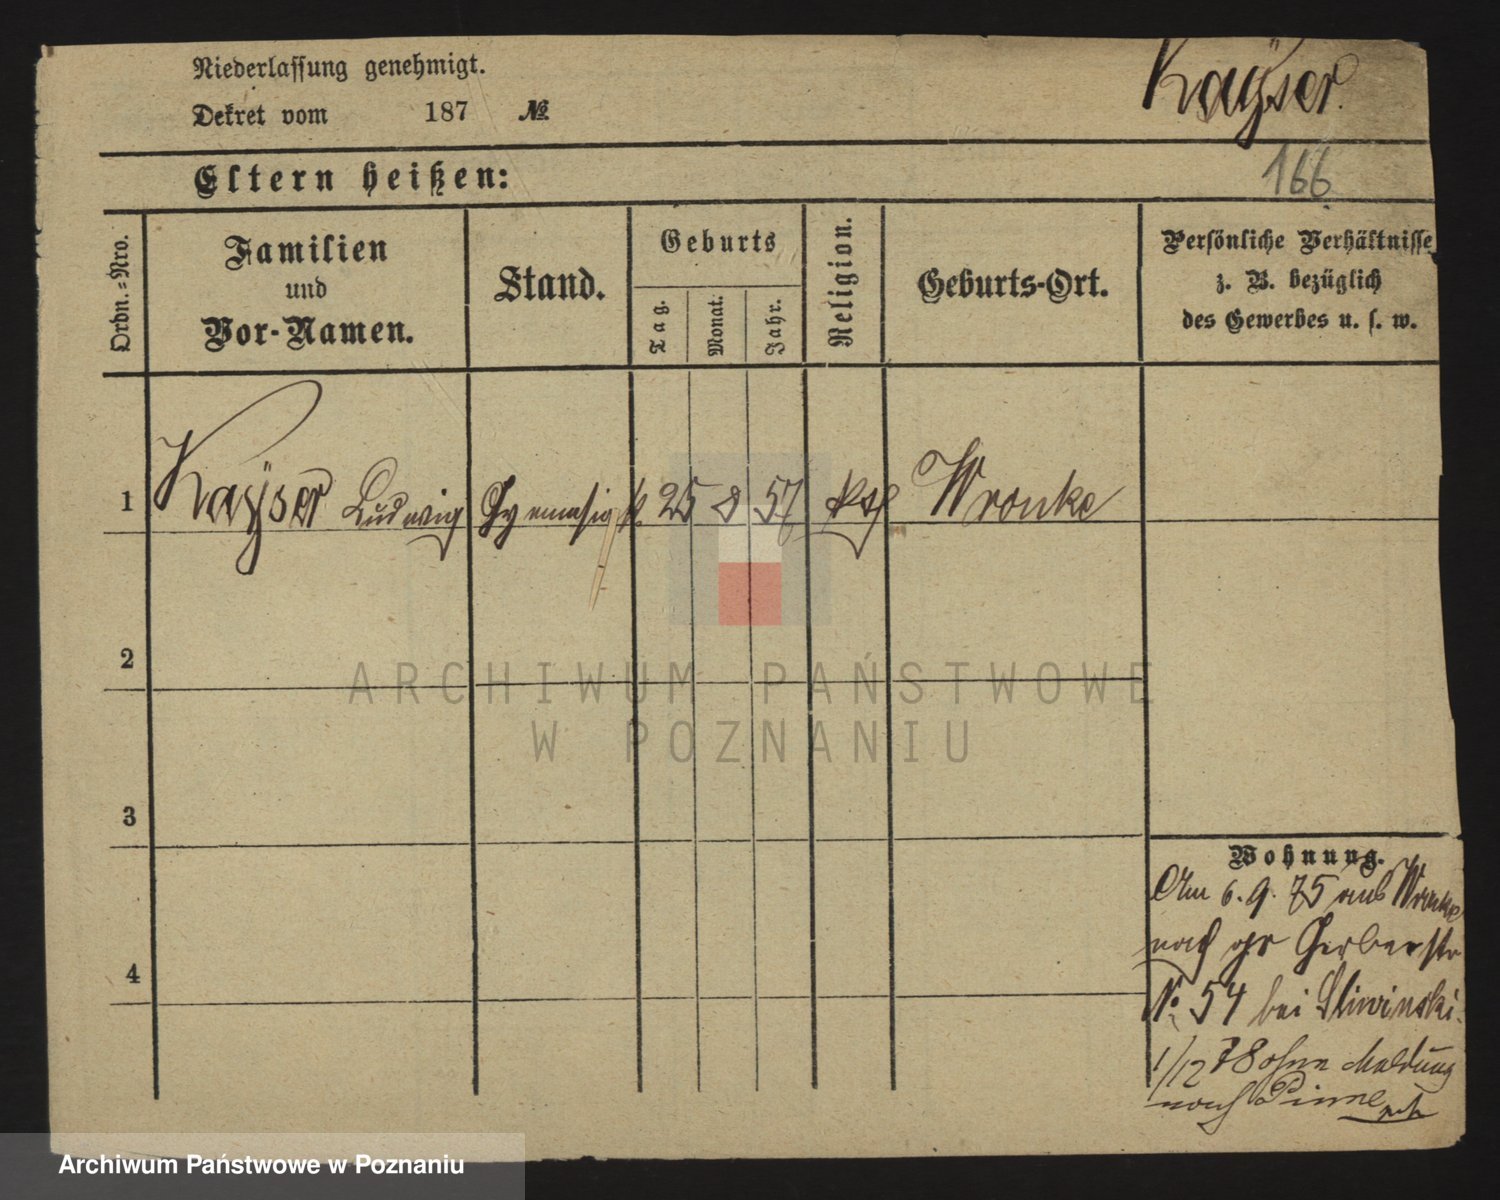 Niederlassung genehmigt.
Kaÿser.
Dekret vom 187 №
Eltern heißen:
166
Ordn.=Nro.
Familien
und
Vor-Namen.
Stand.
Geburts
Tag.
Monat.
Jahr.
Religion.
Geburts-Ort.
Persönliche Verhältnisse
z. B. bezüglich
des Gewerbes u. s. w.
1 Kaÿser Ludwig 25 8 57 Wronke
2
3
4
Wohnung.
Am 6. 9. 75 aus Wronke
nach gr Gerberstr
No. 54 bei Sliwinski.
1/12 78 ohne Meldung
nach Pinne
ARCHIWUM PAŃSTWOWE
W POZNANIU
Archiwum Państwowe w Poznaniu